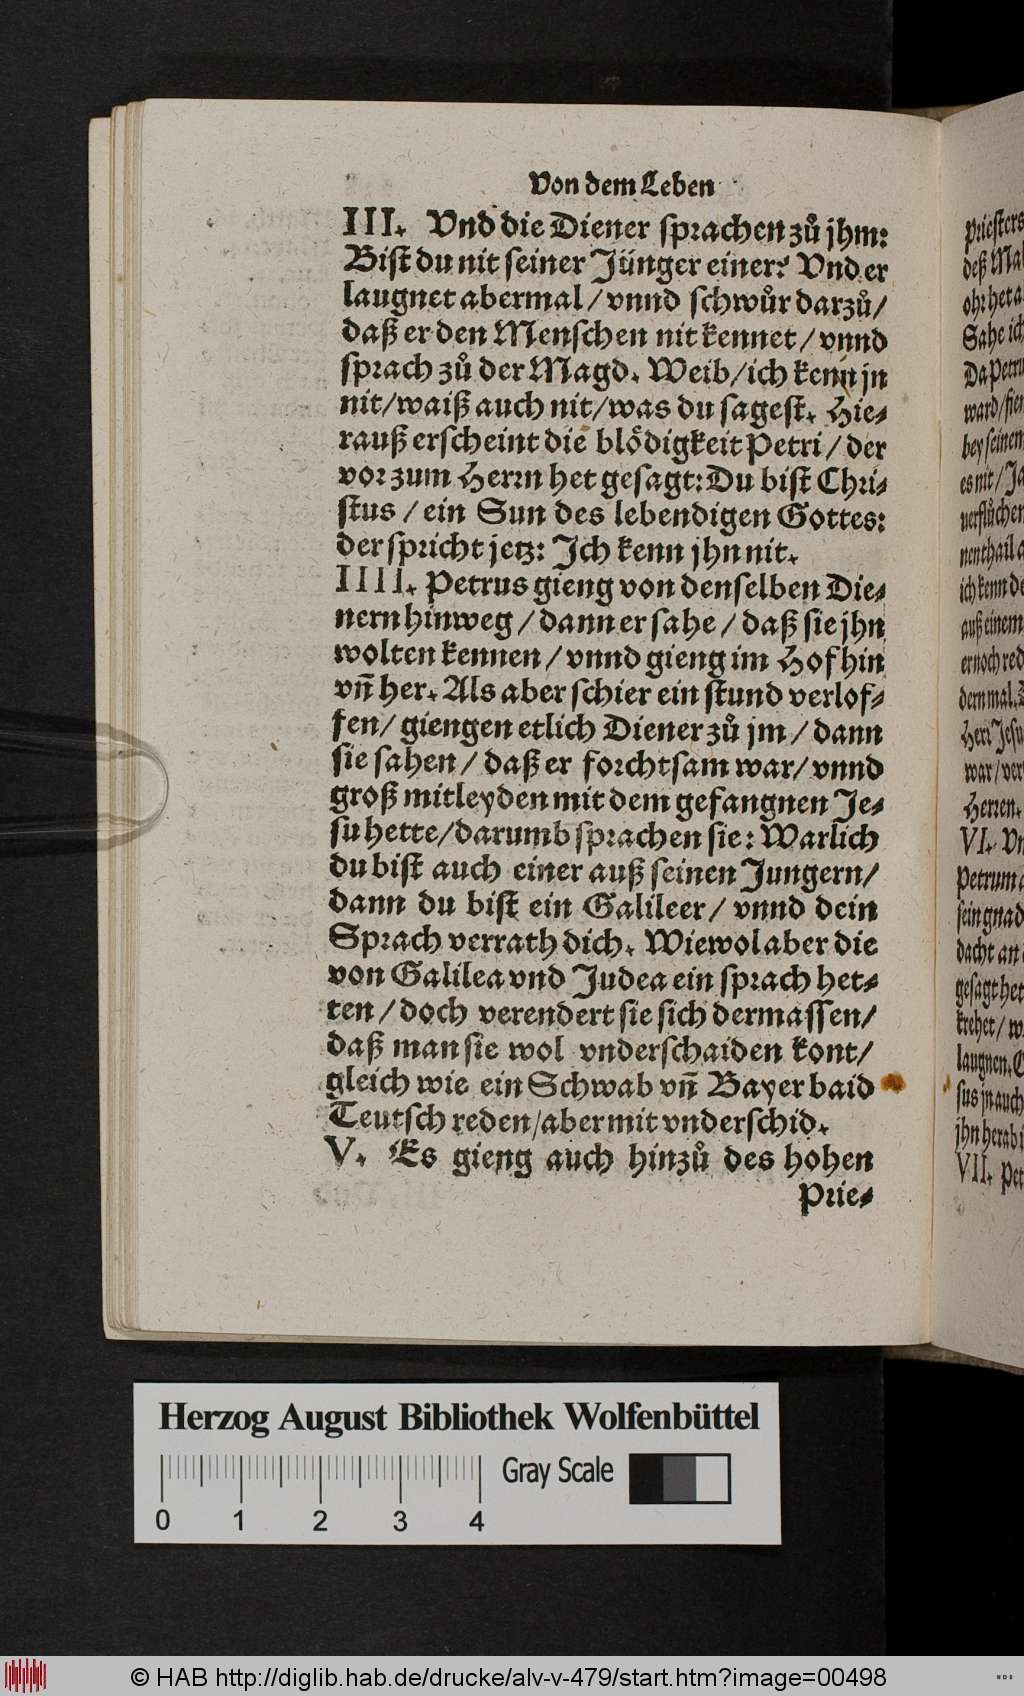 Von dem Leben
III. Vnd die Diener sprachen zů jhm:
Bist du nit seiner Jünger einer? Vnd er
laugnet abermal / vnnd schwůr darzů /
daß er den Menschen nit kennet / vnnd
sprach zů der Magd. Weib / ich kenn jn
nit / waiß auch nit / was du sagest. Hie-
rauß erscheint die blödigkeit Petri / der
vor zum Herrn het gesagt: Du bist Chri-
stus / ein Sun des lebendigen Gottes:
der spricht jetz: Ich kenn jhn nit.
IIII. Petrus gieng von denselben Die-
nern hinweg / dann er sahe / daß sie jhn
wolten kennen / vnnd gieng im Hof hin
vn̄ her. Als aber schier ein stund verlof-
fen / giengen etlich Diener zů jm / dann
sie sahen / daß er forchtsam war / vnnd
groß mitleyden mit dem gefangnen Je-
su hette / darumb sprachen sie: Warlich
du bist auch einer auß seinen Jungern /
dann du bist ein Galileer / vnnd dein
Sprach verrath dich. Wiewol aber die
von Galilea vnd Judea ein sprach het-
ten / doch verendert sie sich dermassen /
daß man sie wol vnderschaiden kont /
gleich wie ein Schwab vn̄ Bayer baid
Teutsch reden / aber mit vnderschid.
V. Es gieng auch hinzů des hohen
Prie-
priesters
deß Mal
ohr het a
Sahe ich
Da Petru
ward / fien
bey seinem
es nit / Ja
verflůchen
nen thail a
ich kenn de
auß einem
er noch red
dern mal.
Herr Jesu
war / ver
Herren.
VI. Vn
Petrum a
sein gnad
dacht an
gesagt het
krehet / w
laugnen.
sus jn auch
jhn herab
VII. Pet
Herzog August Bibliothek Wolfenbüttel
Gray Scale
0 1 2 3 4
© HAB http://diglib.hab.de/drucke/alv-v-479/start.htm?image=00498